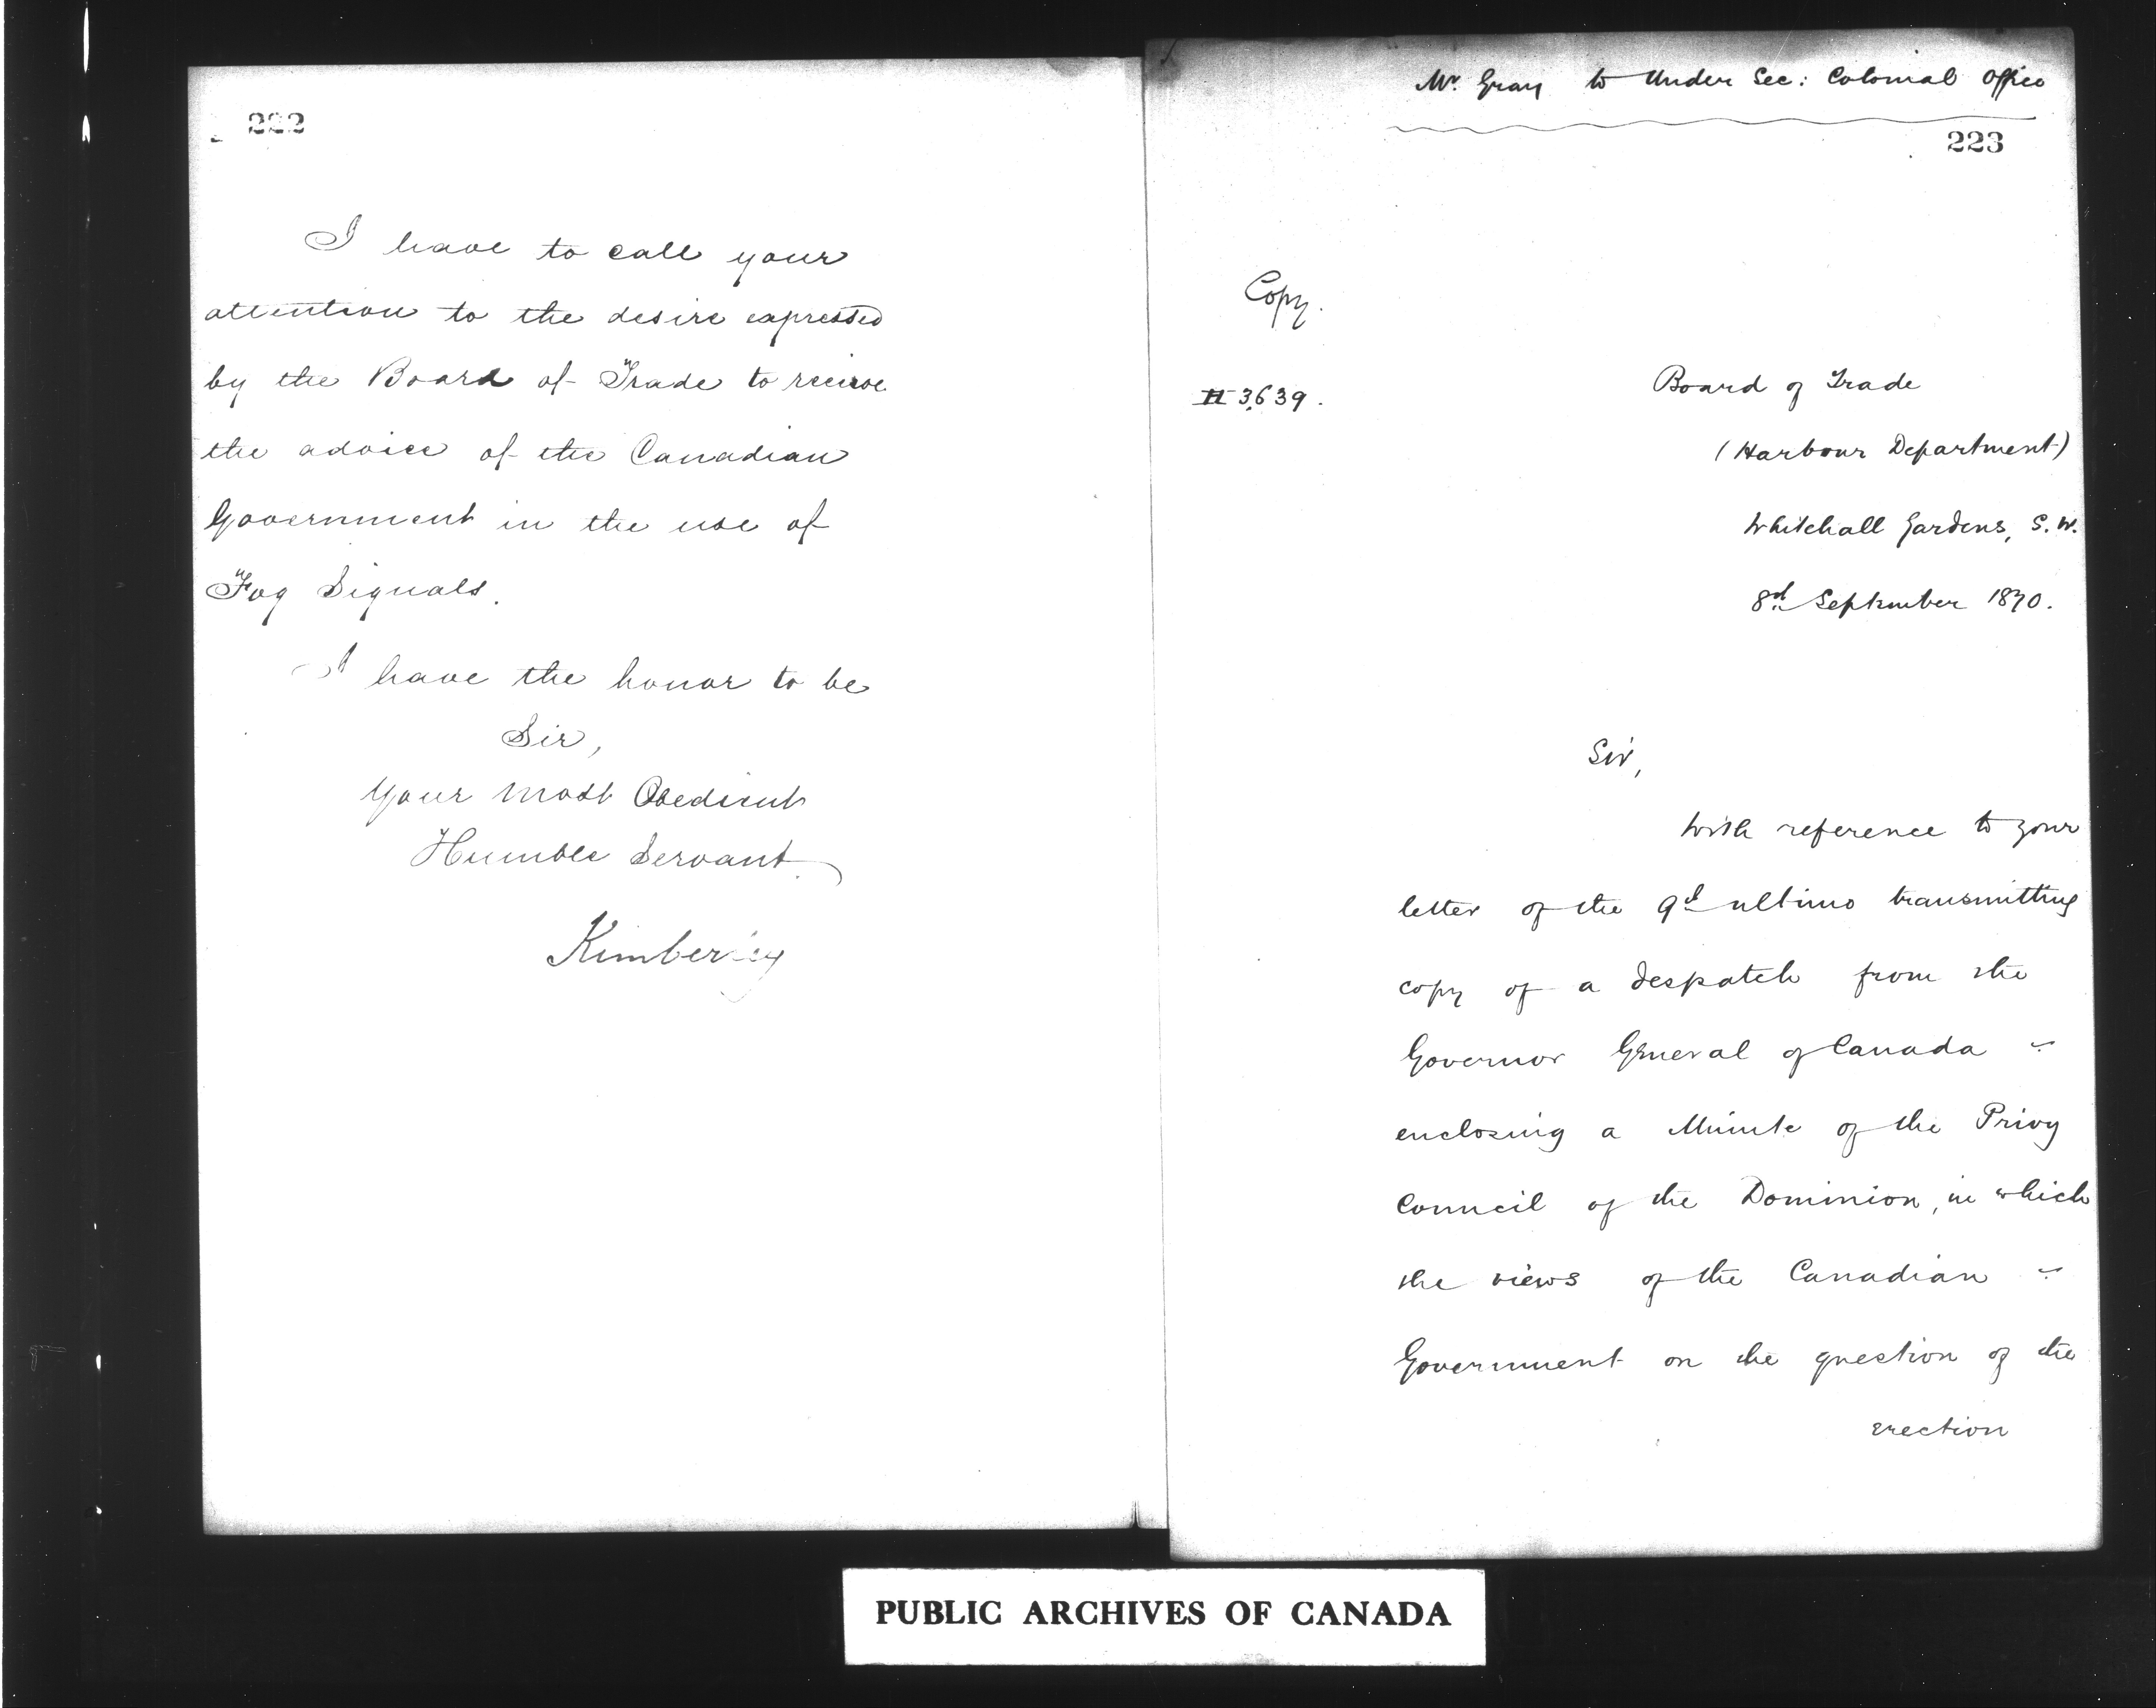 222
I have to call your
attention to the desire expressed
by the Board of Trade to receive
the advice of the Canadian
Government in the use of
Fog Signals.
I have the honor to be
Sir,
Your most Obedient
Humble Servant.
Kimberley
Mr. Gray to Under Sec: Colonial Office
223
Copy.
H 3639.
Board of Trade
(Harbour Department)
Whitehall Gardens, S.W.
8th September 1870.
Sir,
With reference to your
letter of the 9th ultimo transmitting
copy of a despatch from the
Governor General of Canada
enclosing a Minute of the Privy
Council of the Dominion, in which
the views of the Canadian
Government on the question of the
erection
PUBLIC ARCHIVES OF CANADA